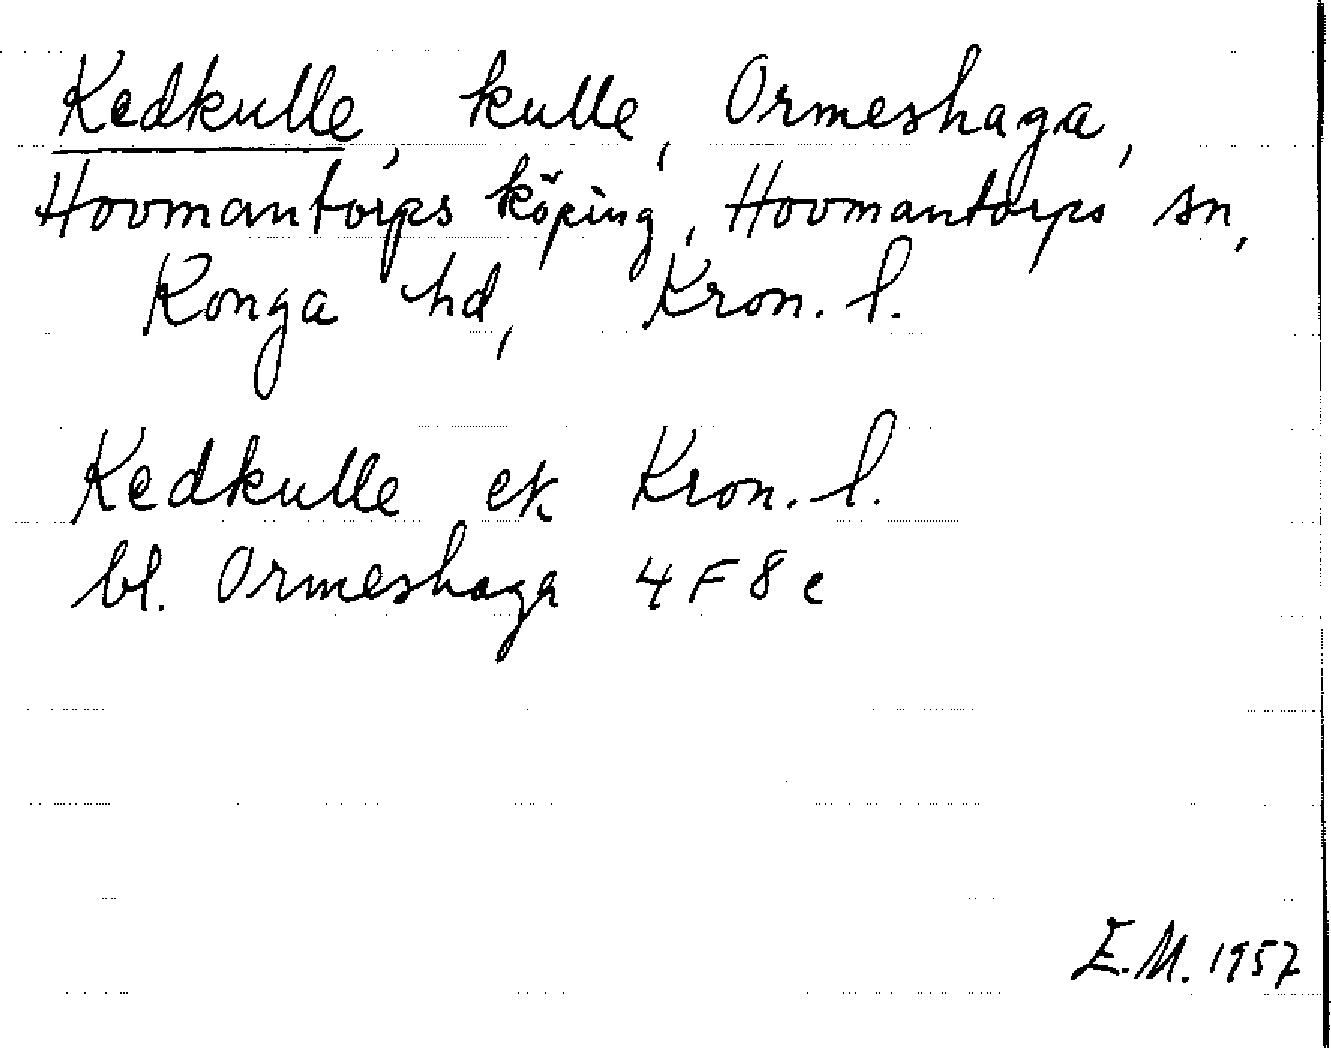 Kedkulle, kulle, Ormeshaga,
Hovmantorps köping, Hovmantorps sn,
Konga hd, Kron. l.
Kedkulle ek Kron. l.
bl. Ormeshaga 4F8e
E.M. 1957